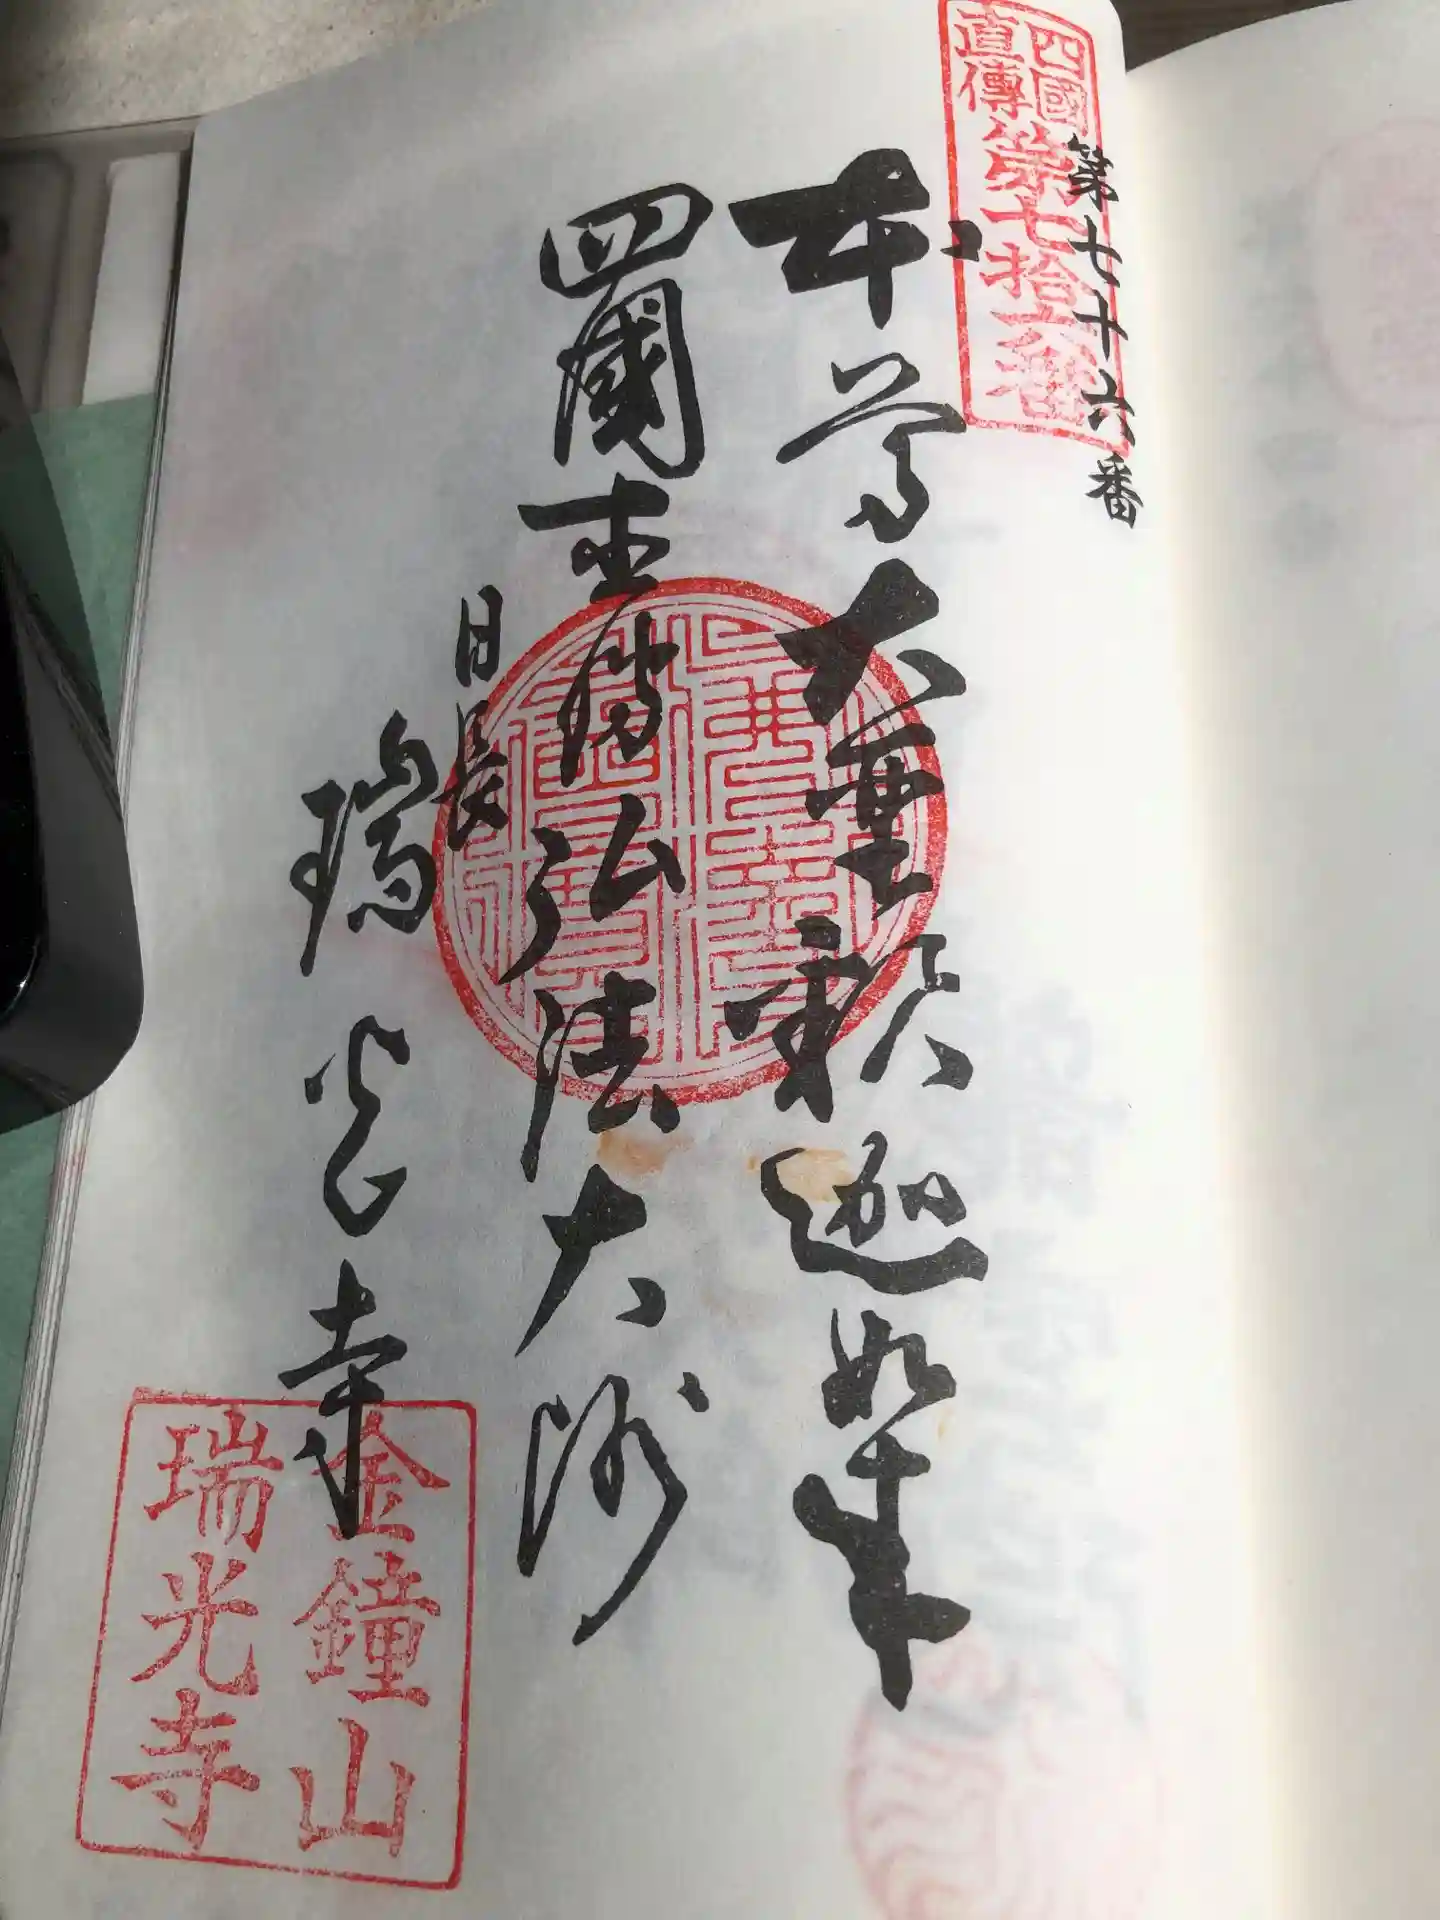 四國
直傳
第七拾六番
第七十六番
本尊大聖釈迦如来
四國直傳弘法大師
日長
瑞光寺
金鐘山
瑞光寺